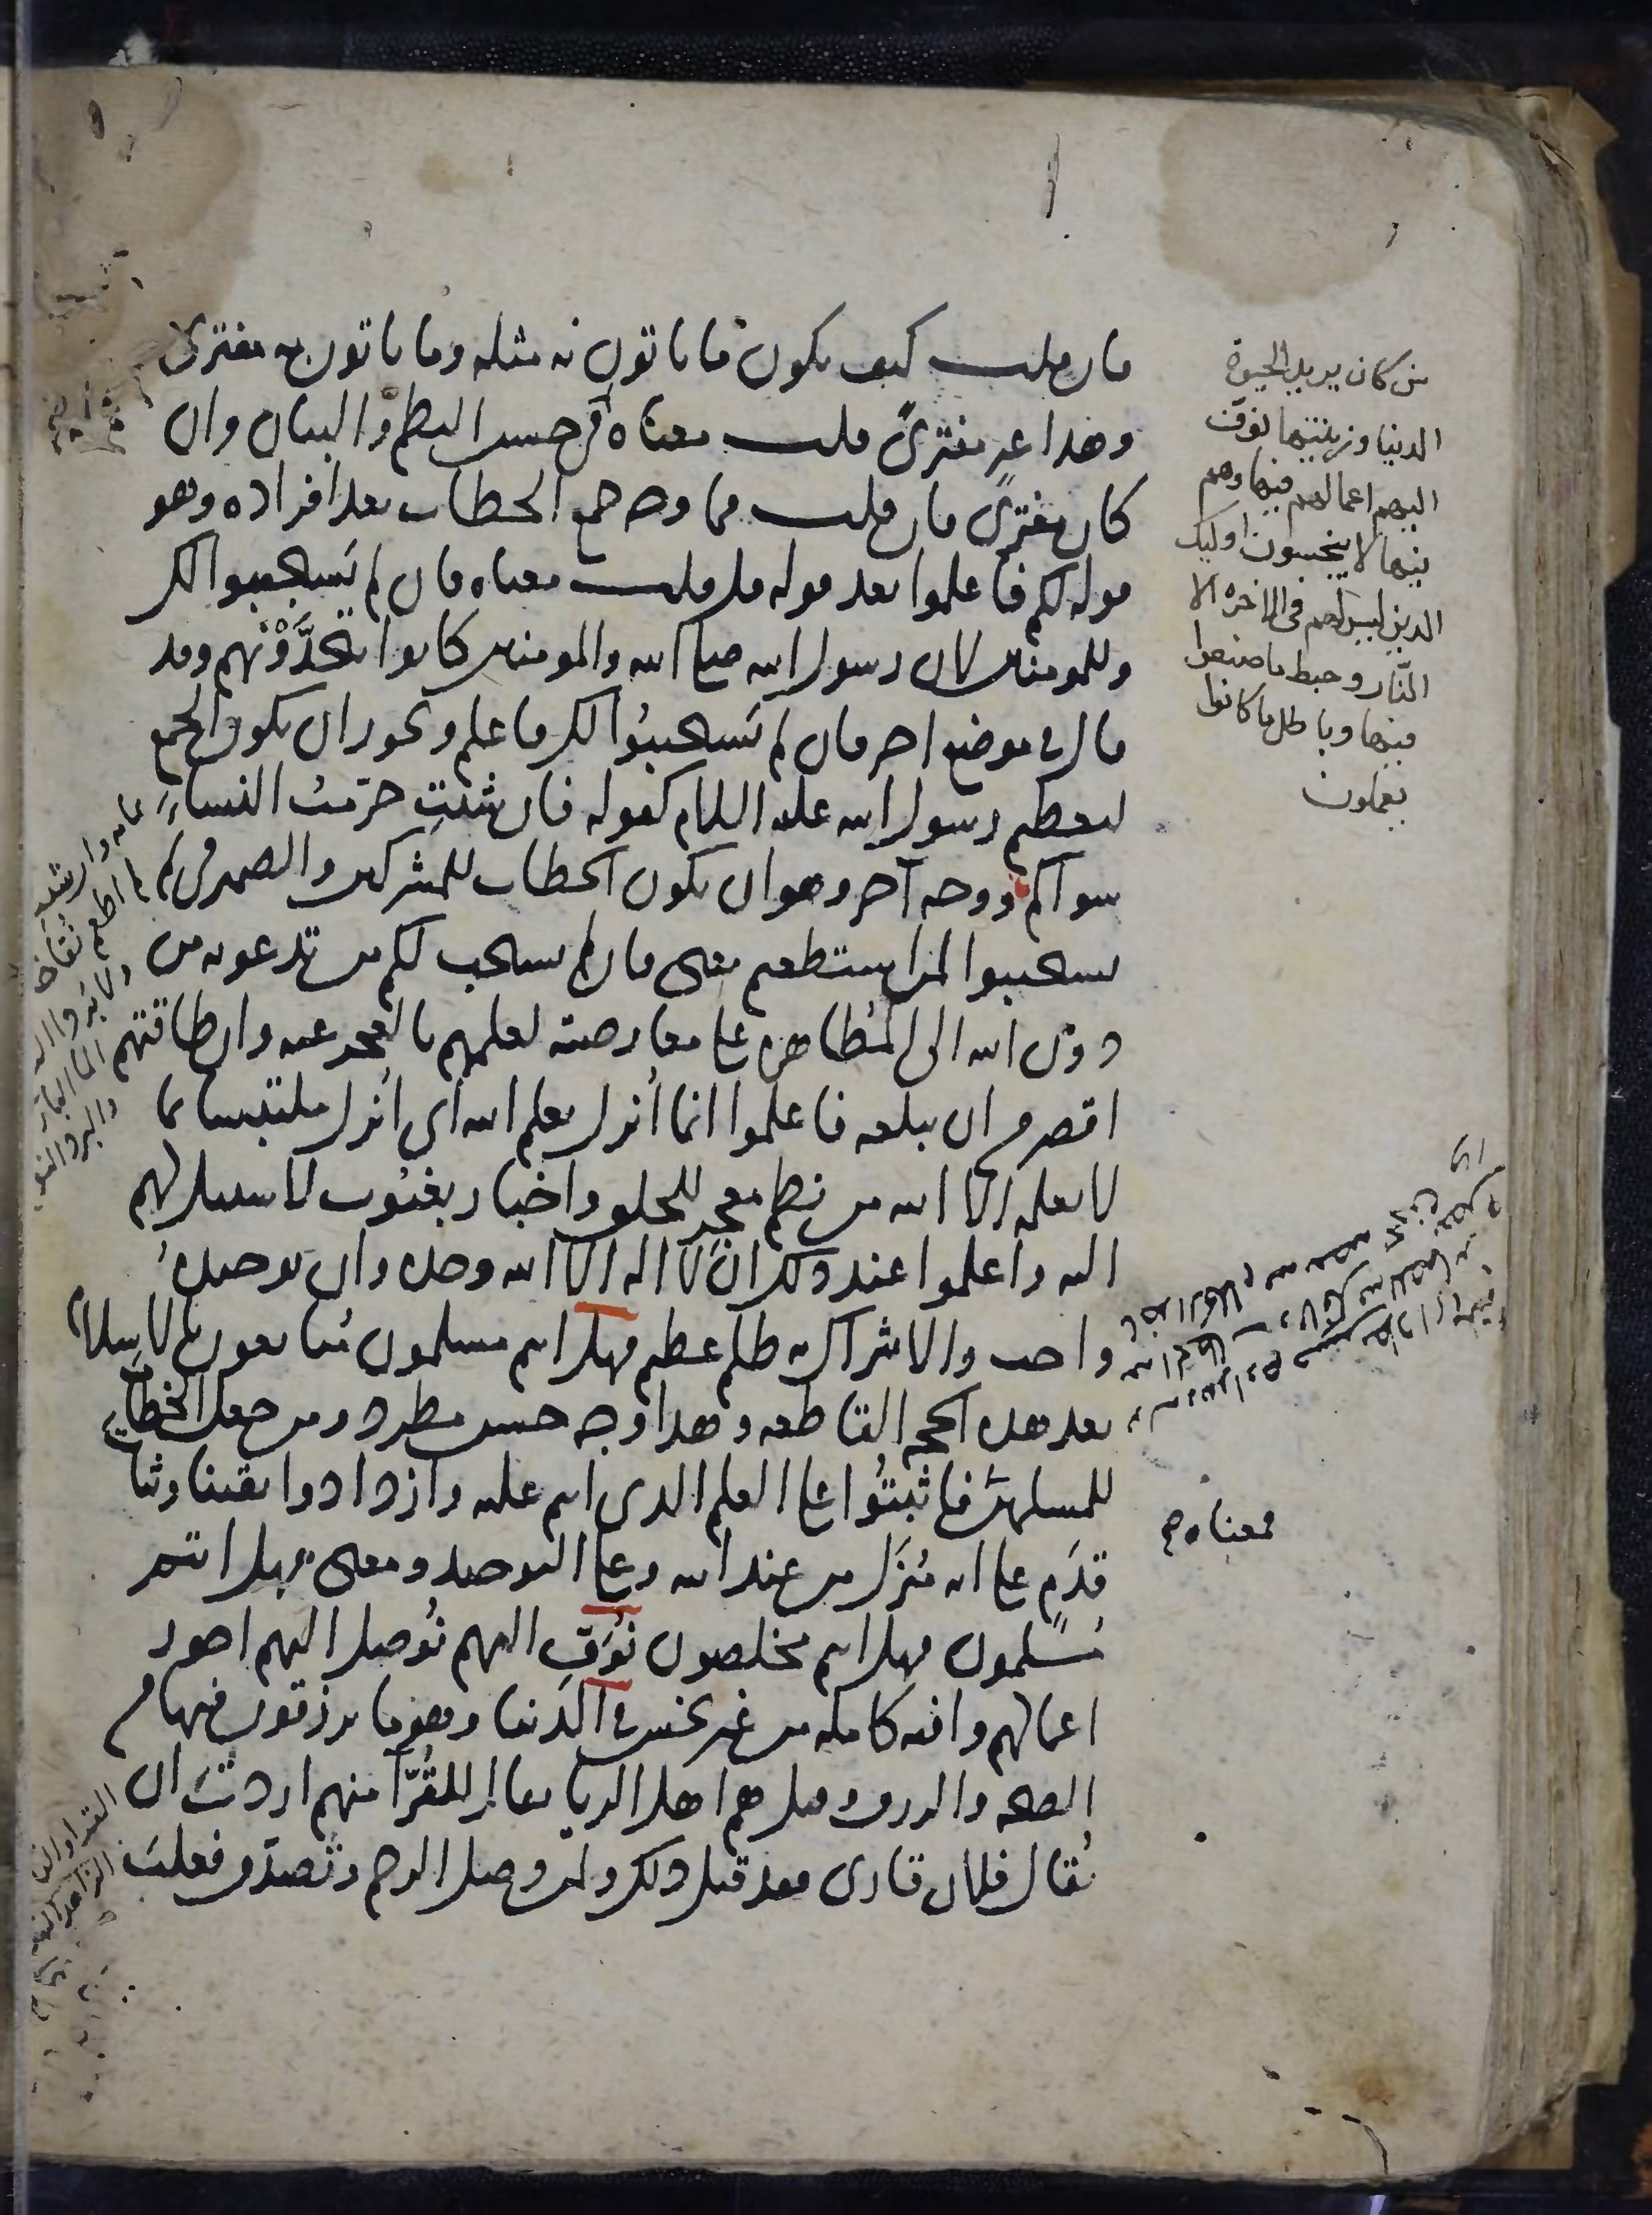 فان قلت كيف يكون ما ياتون به مثله وما ياتون به مفترى
وهذا غير مفترى قلت معناه في حسن النظم والبيان وان
كان مفترى فان قلت فما وجه جمع الخطاب بعد افراده وهو
قوله لكم فاعلموا بعد قوله قل قلت معناه فان لم يَستجيبوا لك
وللمومنين لان رسول الله صلى الله والمومنين كانوا يتحدَّوْنهم وقد
قال في موضع اخر فان لم يَستجيبُوا لك فاعلم ويجوز ان يكون الجمع
لتعظيم رسول الله عليه السلام كقوله فان شئتِ حرّمتُ النساءَ
سواكم ووجه آخر وهو ان يكون الخطاب للمشركين والضمير في لم
يستجيبوا لمن استطعتم يعني فان لم يستجب لكم من تدعونه من
دون الله الى المُظاهرة على معارضته لعلمهم بالعجز عنه وان طاقتهم
اقصر من ان تبلغه فاعلموا انما أُنزل بعلم الله اي أُنزل ملتبسا بما
لا يعلمه الا الله من نظم معجِز للخلق واخبار بغيُوب لا سبيل لهم
اليه واعلموا عند ذلك ان لا اله الا الله وحده وان توحيدَهُ
واجب والاشراك به ظلم عظيم فهل انتم مسلمون مُتابعون بالاسلام
بعد هذه الحجه القاطعه وهذا وجه حسن مطرد ومن جعل الخطاب
للمسلمين فاثبتُوا على العلم الذي انتم عليه وازدادوا يقينا وثبات
قدَم على انه مُنزَل من عند الله وعلى التوحيد ومعنى فهل انتم
مُسلمون فهل انتم مخلصون نُوَفِّ اليهم نُوصل اليهم اجور
اعمالهم وافيه كامله من غير بخس في الدنيا وهو ما يرزقون فيها من
الصحه والرزق وقيل هم اهل الريا يقال للقُرّاء منهم اردتَ ان
يُقال فلان قارى فقد قيل ذلك ولمن وصل الرحم وتصدّق فعلتَ
من كان يريد الحيوة
الدنيا وزينتها نوف
اليهم اعمالهم فيها وهم
فيها لا يبخسون اوليك
الذين ليس لهم في الاخره الا
النّار وحبط ما صنعوا
فيها وباطل ما كانوا
يعملون
فمعناه